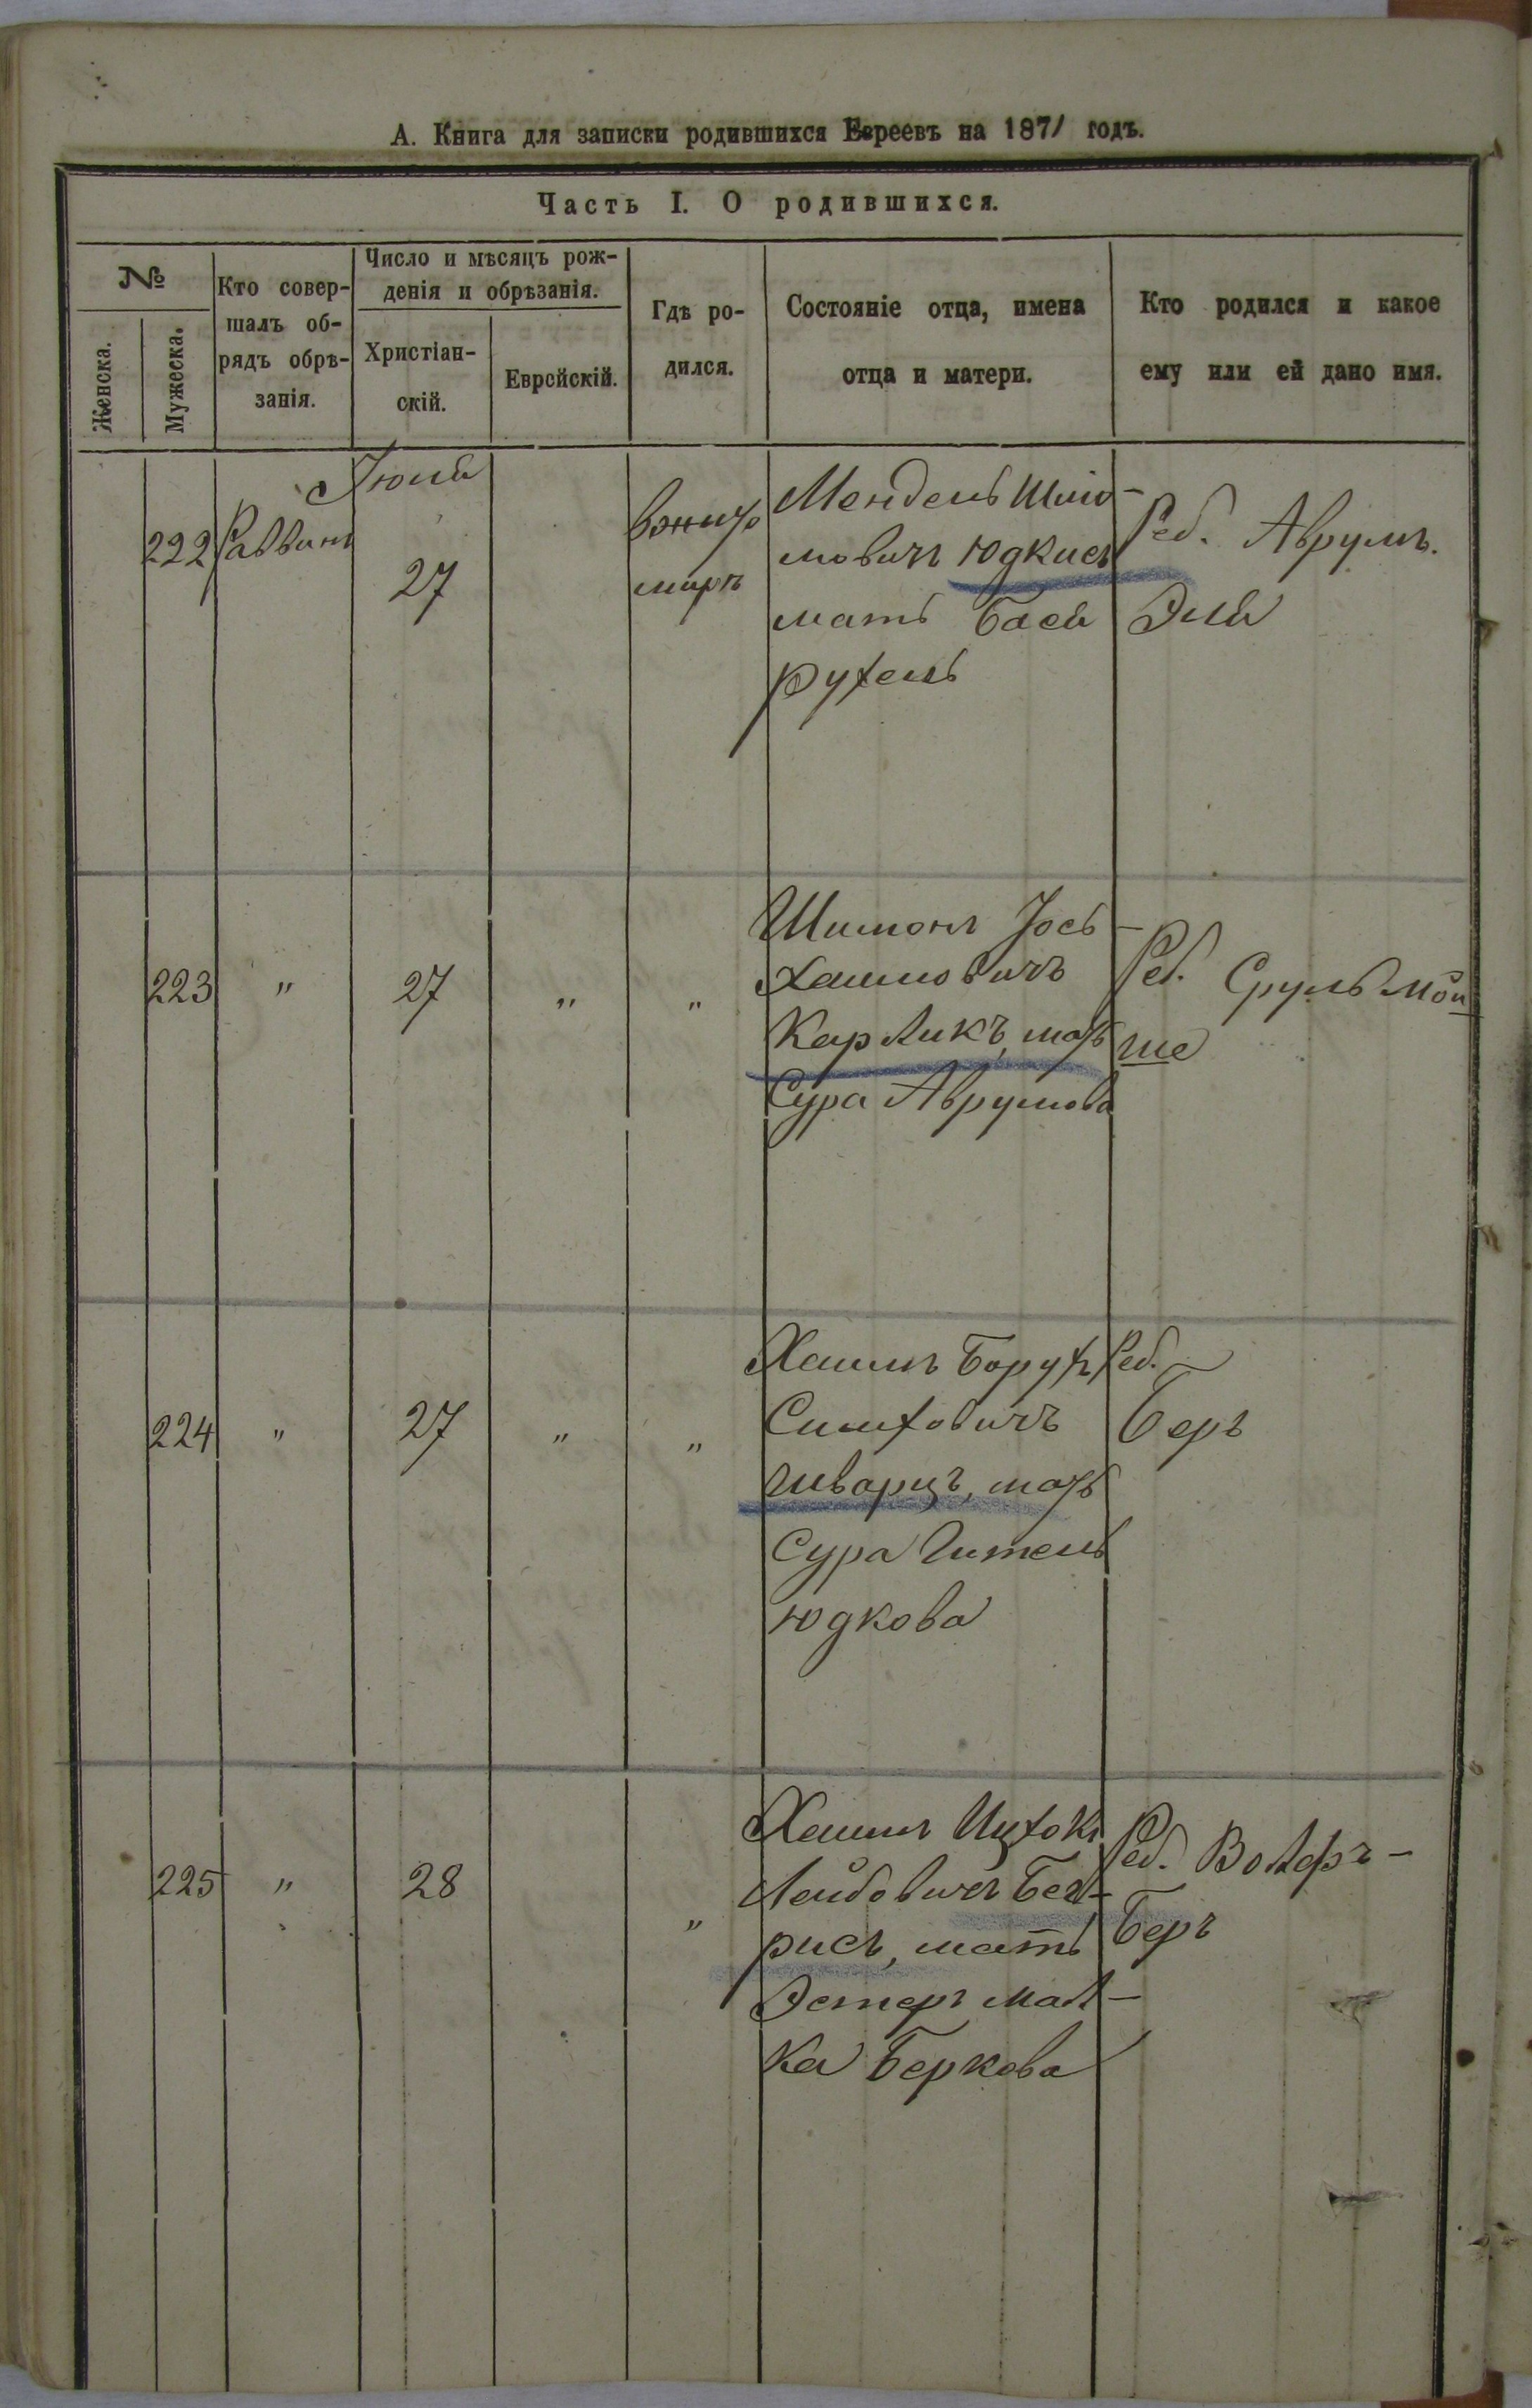 А. Книга для записки родившихся Евреевъ на 1871 годъ.
Часть I. О родившихся.
№
Женска.
Мужеска.
Кто совер-
шалъ об-
рядъ обрѣ-
занія.
Число и мѣсяцъ рож-
денія и обрѣзанія.
Христіан-
скій.
Еврейскій.
Гдѣ ро-
дился.
Состояніе отца, имена
отца и матери.
Кто родился и какое
ему или ей дано имя.
222
Раввинъ
27
миръ
Мендель Шлio-
мовичъ Юдкисъ
мать Бася
Рухель
Реб. Аврумъ.
Эля
223
"
27
"
"
Шимонъ Јось-
Хаимовичъ
Карликъ, мать
Сура Аврумова
Реб. Сруль Мой
ше
224
"
27
"
"
Хаимъ Борухъ
Симховичъ
Шварцъ, мать
Сура Гитель
Юдкова
Реб.
Беръ
225
"
28
"
Хаимъ Ицхокъ
Лейбовичъ
рисъ, мать
Эстеръ Мал-
ка Беркова
Реб. Волфъ-
Беръ